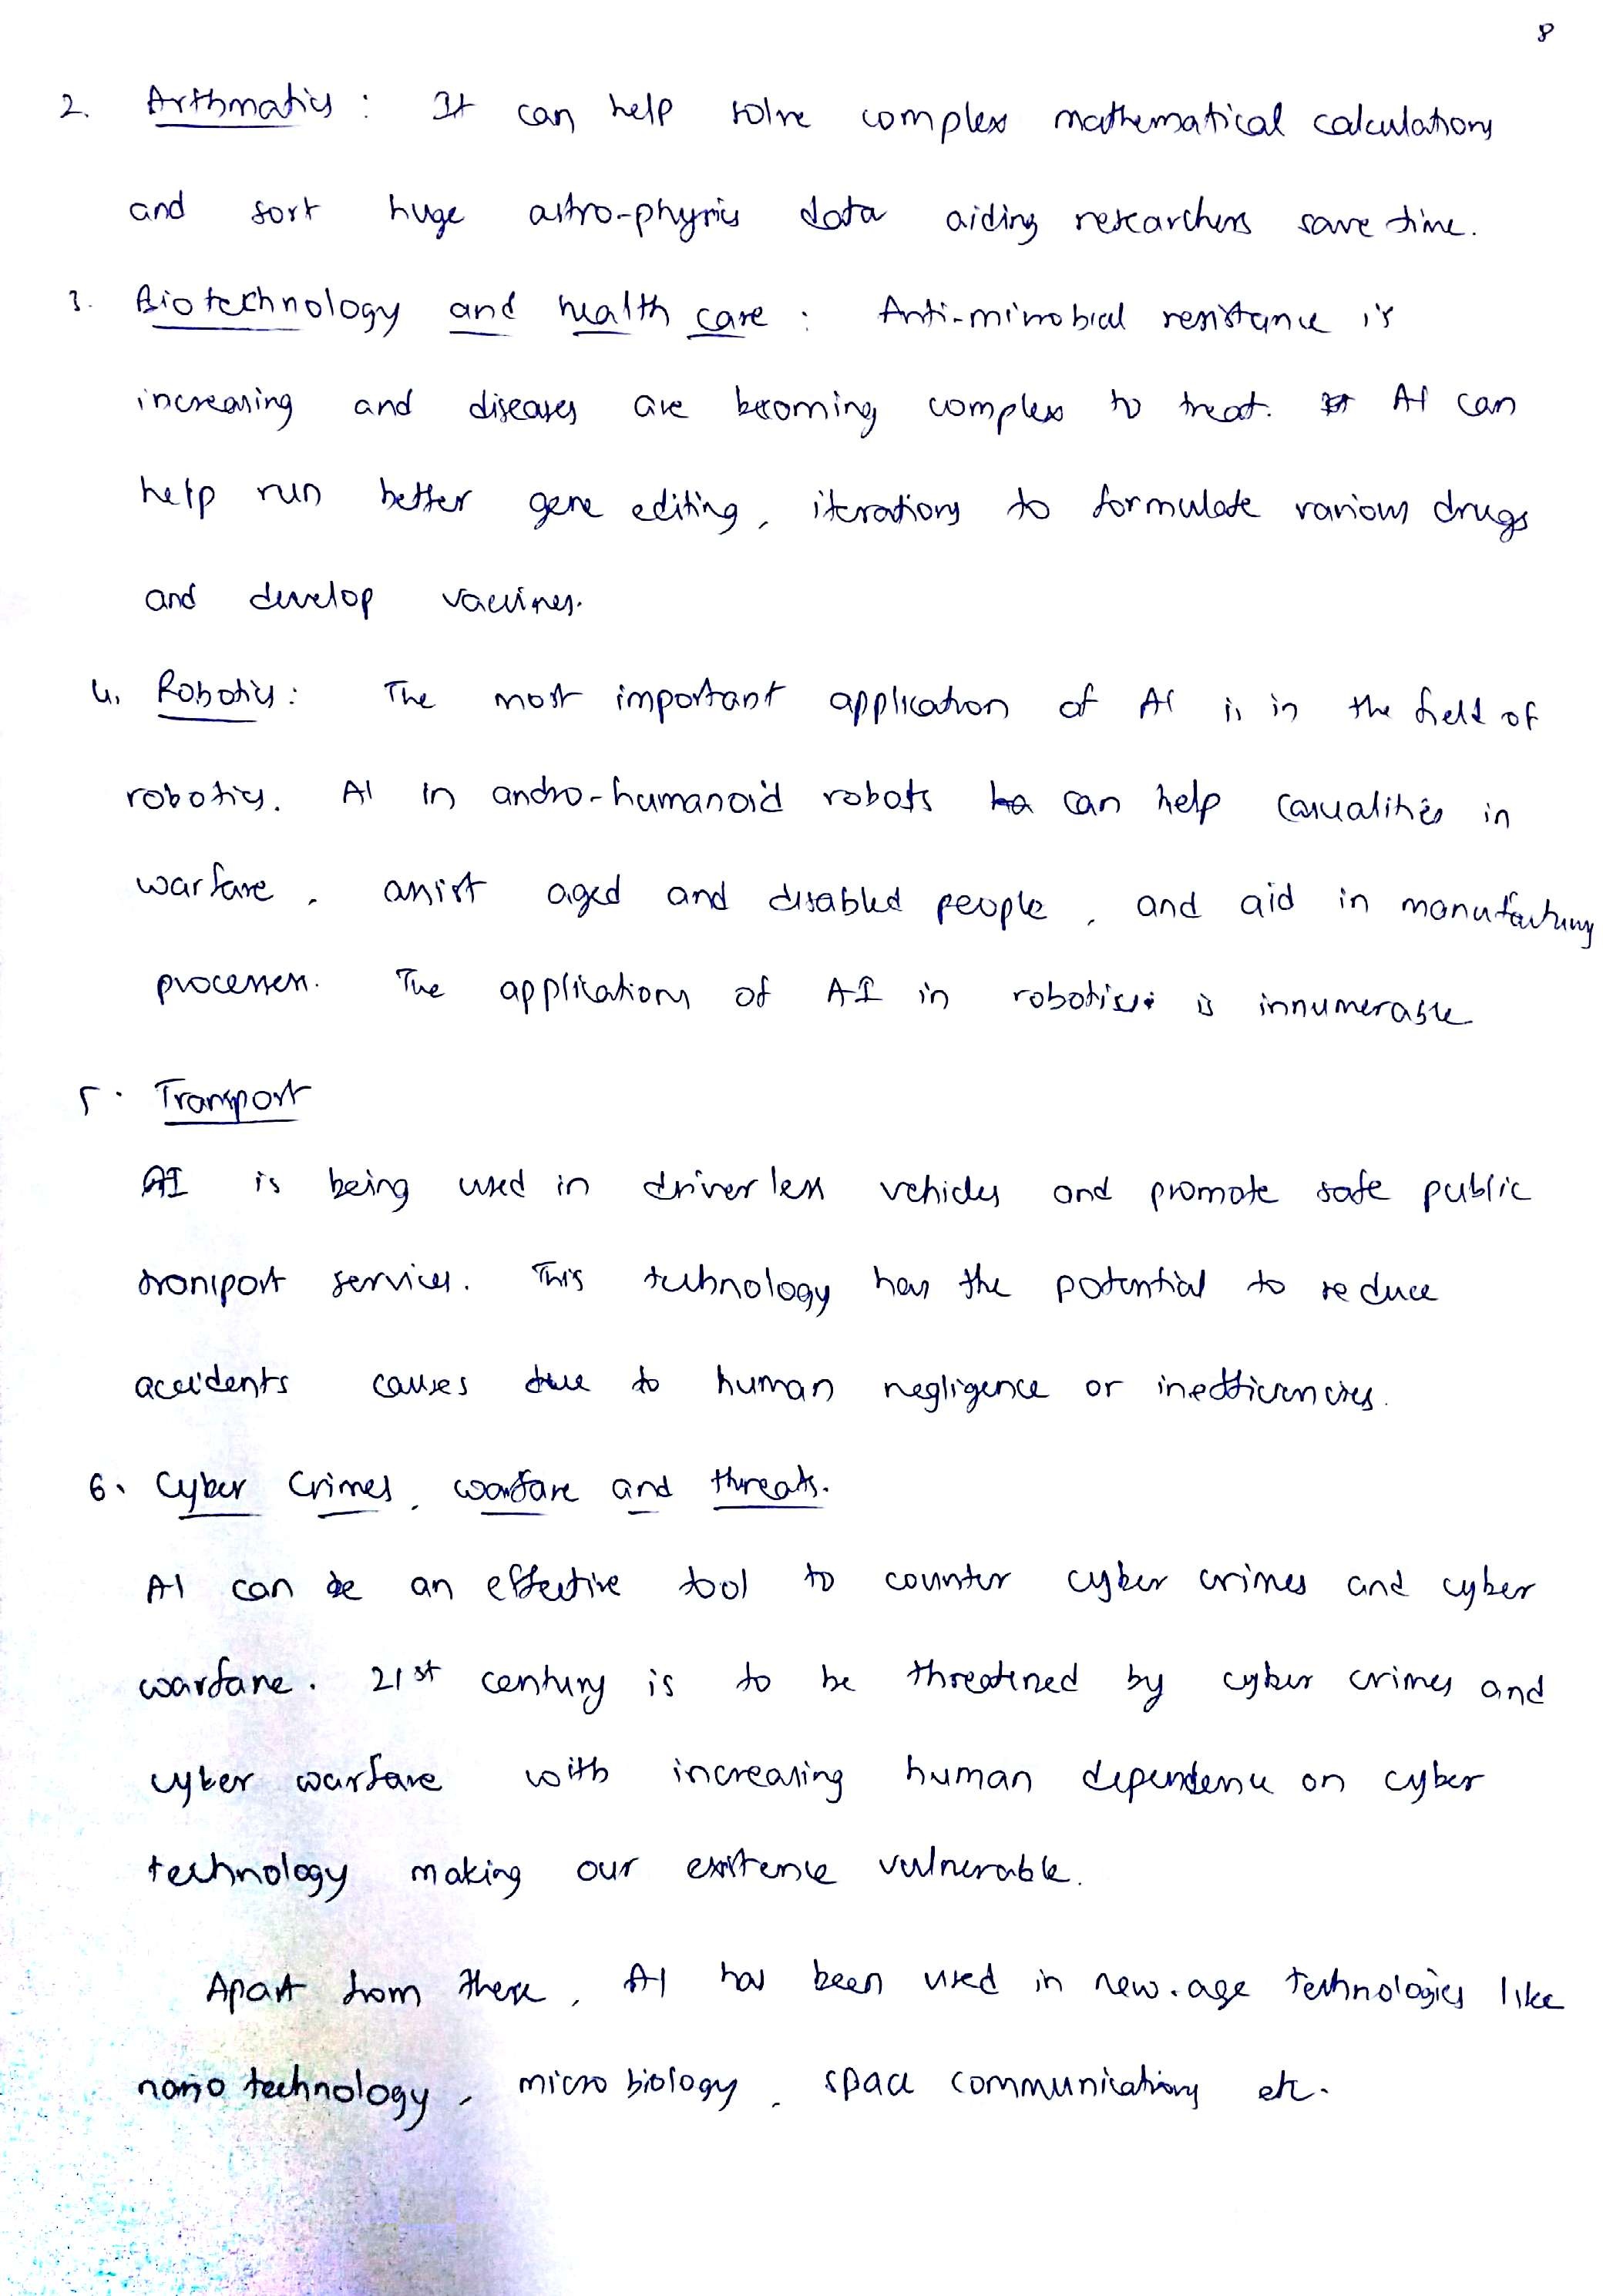 8
2. Arthmatics : It can help solve complex mathematical calculations
and sort huge astro-physics data aiding researchers save time.
3. Biotechnology and health care : Anti-microbial resistance is
increasing and diseases are becoming complex to treat. It AI can
help run better gene editing, iterations to formulate various drugs
and develop vaccines.
4. Robotics : The most important application of AI is in the field of
robotics. AI in andro-humanoid robots ha can help casualities in
warfare, assist aged and disabled people, and aid in manufacturing
processes. The applications of AI in robotics is innumerable
5. Transport
AI is being used in driverless vehicles and promote safe public
transport services. This technology has the potential to reduce
accidents causes due to human negligence or inefficiencies.
6. Cyber Crimes, warfare and threats.
AI can be an effective tool to counter cyber crimes and cyber
warfare. 21st century is to be threatened by cyber crimes and
cyber warfare with increasing human dependence on cyber
technology making our existence vulnerable.
Apart from these, AI has been used in new-age technologies like
nano technology, micro biology, space communications etc.